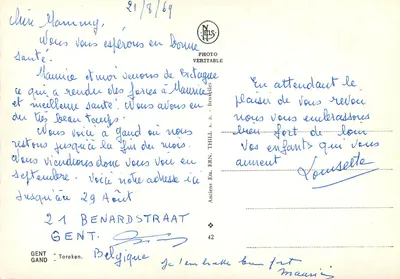 21/8/69
Chère Mammy,
Nous vous espérons en bonne
santé.
Maurice et moi venons de Bretagne
ce qui a rendu des forces à Maurice
et meilleure santé. Nous avons eu
du très beau temps.
Nous voici à Gand où nous
restons jusqu'à la fin du mois.
Nous viendrons donc vous voir en
septembre. Voici notre adresse ici
jusqu'au 29 Août
21 BENARDSTRAAT
GENT.
Belgique
GENT
GAND - Toreken.
PHOTO
VERITABLE
Anciens Ets. ERN. THILL s. a. Bruxelles
42
En attendant le
plaisir de vous revoir
nous vous embrassons
bien fort de loin
vos enfants qui vous
aiment
je t'embrasse bien fort
Maurice